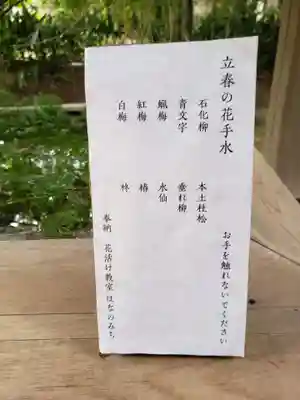 立春の花手水
お手を触れないでください
石化柳
本土杜松
青文字
垂れ柳
蝋梅
水仙
紅梅
椿
白梅
柊
奉納 花活け教室 はなのみち